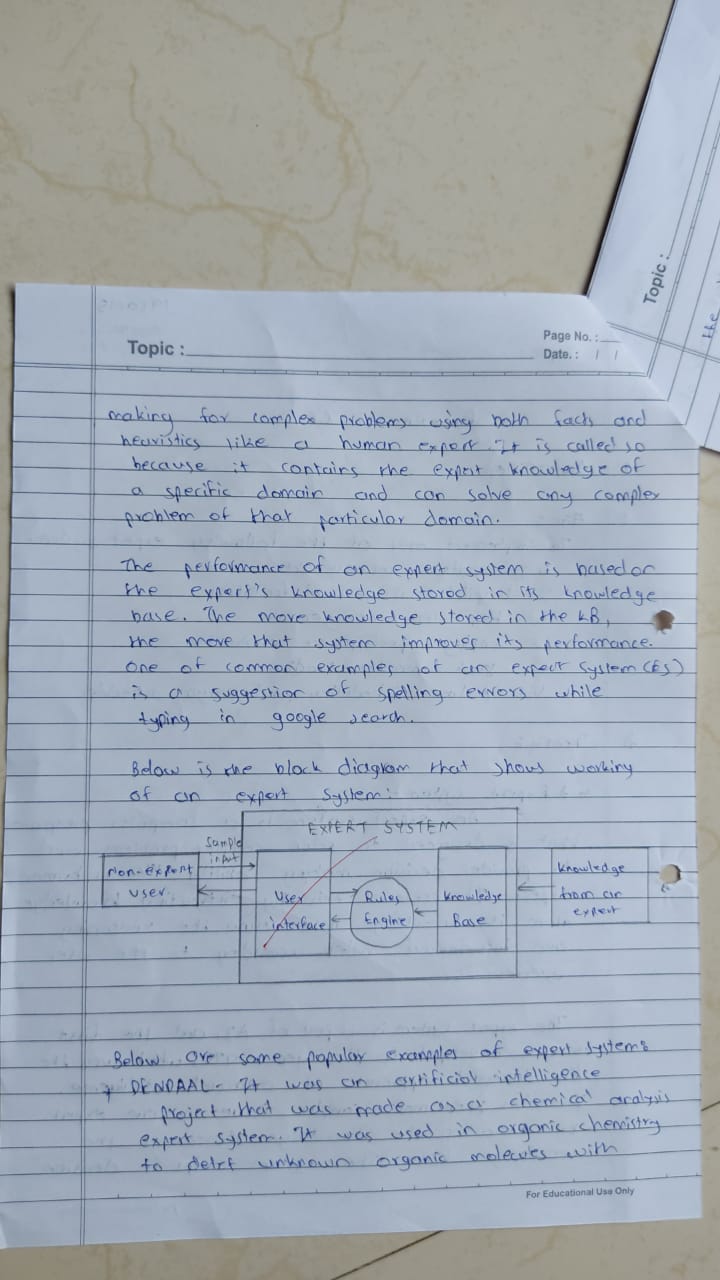 Topic :
the
Topic :
Page No. :
Date. : / /
making for complex problems using both facts and
heuristics like a human expert. It is called so
because it contains the expert knowledge of
a specific domain and can solve any complex
problem of that particular domain.
The performance of an expert system is based on
the expert's knowledge stored in its knowledge
base. The more knowledge stored in the KB,
the more that system improves its performance.
One of common examples of an expert System (ES)
is a suggestion of spelling errors while
typing in google search.
Below is the block diagram that shows working
of an expert System:
EXPERT SYSTEM
Sample
input
Non-expert
user.
User
interface
Rules
Engine
Knowledge
Base
Knowledge
from an
expert
Below are some popular examples of expert systems
DENDAAL- It was an artificial intelligence
project that was made as a chemical analysis
expert system. It was used in organic chemistry
to detet unknown organic molecules with
For Educational Use Only